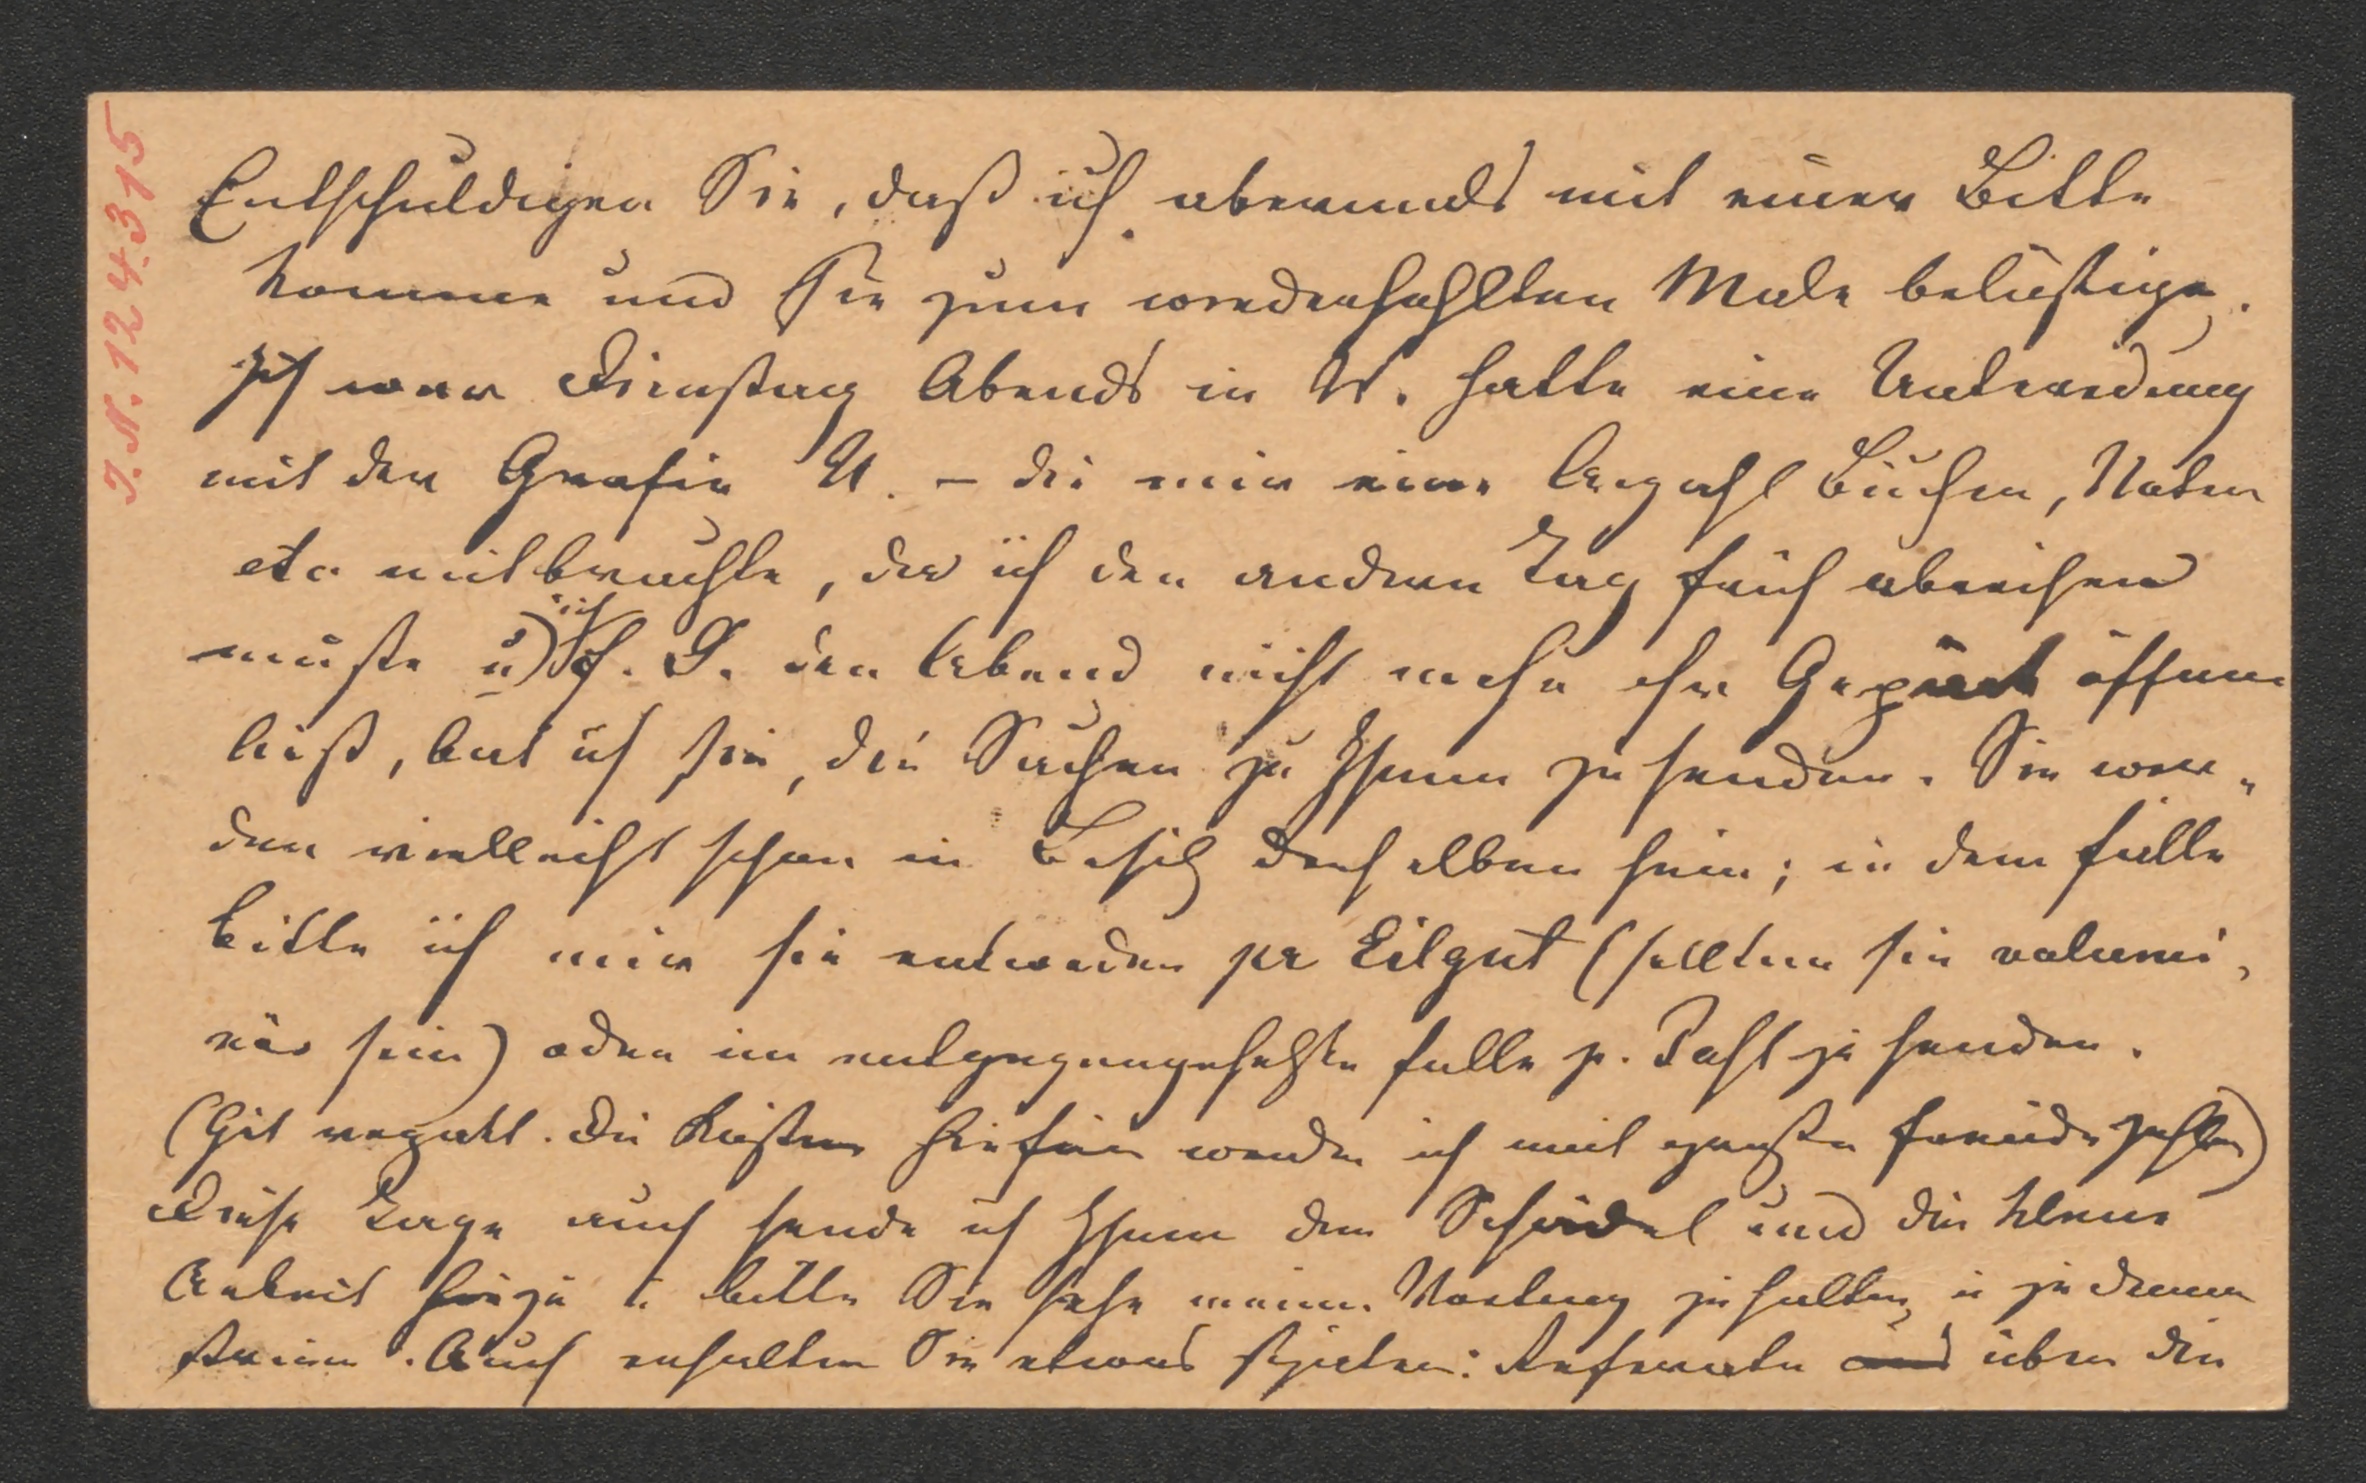 J.N. 124.315
Entschuldigen Sie, daß ich abermals mit einer Bitte
komme und Sie zum wiederhohlten Male belästige.
Ich war Dienstag Abends in W. hatte eine Unterredung
mit der Grafin U. – die mir eine Anzahl Bücher, Noten
etc mitbrachte, da ich den andern Tag früh abreisen
mußte u) ich den Abend nicht mehr ihr Gepäck öffnen
ließ, bat ich sie, die Sachen zu Ihnen zu senden. Sie wer-
den vielleicht schon in Besitz derselben sein; in dem falle
bitte ich mir sie entweder pr Eilgut (sollten sie volumi-
nös sein) oder im entgegengesetzten falle p. Post zu senden.
(Gut verpackt. Die Kosten hiefür werde ich mit großer freude zahlen)
Diese Tage auch sende ich Ihnen den und die kleine
Arbeit hinzu u. bitte Sie sehr meinen Vortrag zu halten, u zu
. Auch erhalten Sie etwas später: Referate über die